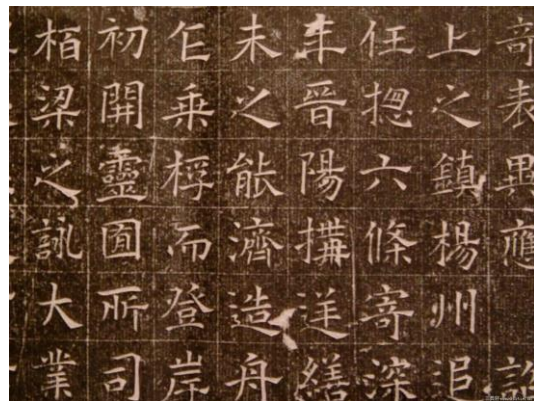 竒表異應
上之鎮楊州追
任揔六條寄深
年晉陽搆逆繕
未之能濟造舟
乍乘桴而登岸
初開靈囿所司
栢梁之詠大業